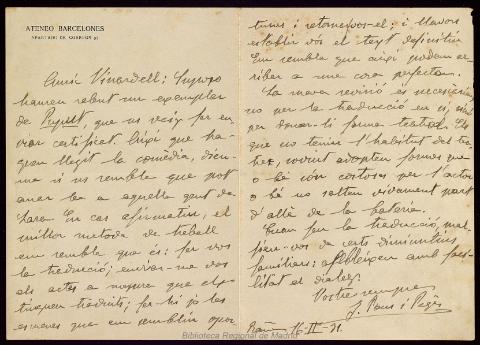 ATENEO BARCELONES
APARTADO DE CORREOS
Amic Vinardell: Suposo
haureu rebut un exemplar
de Papest, que us vaig fer en-
viar certificat. Quan ha-
gueu llegit la comèdia, dieu-
me si us sembla que pot
anar be a aquella gent de
fora. En cas afirmatiu, el
millor metode de treball
em sembla que és: fer vos
la traducció; enviar-me vos
els actes a mesura que els
tingueu traduits; fer-hi jo les
esmenes que em semblin opor-
tunes i retornar-vos-el; i llavors
establir vos el text definitiu.
Em sembla que així podem ar-
ribar a una cosa perfecta.
La meva revisió és necessària
no per la traducció en si, sinó
per donar-li forma teatral. Els
que no tenen l'habitud del tea-
tre, sovint adopten formes que
o bé són costoses per l'actor
o bé no salten vivament part
d'allà de la bateria.
Quan feu la traducció, mal-
fieu-vos de certs diminutius
familiars: afebleixen amb faci-
litat el diàleg.
Vostre sempre
J. Pous i Pagès
16-II-31.
Biblioteca Regional de Madrid